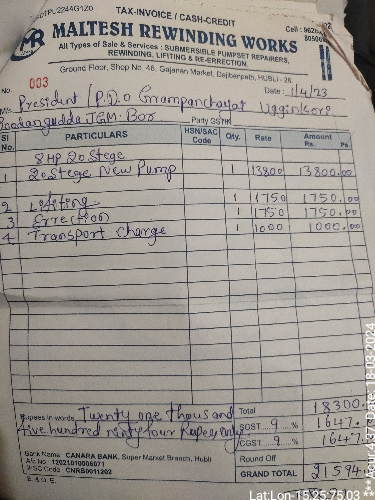 TAX-INVOICE / CASH-CREDIT
MALTESH REWINDING WORKS
All Types of Sale & Services : SUBMERSIBLE PUMPSET REPAIRERS,
REWINDING, LIFTING & RE-ERRECTION.
Ground Floor, Shop No. 48, Gajanan Market, Dajibanpeth, HUBLI - 28.
No. 003 Date : 1/4/23
M/s. President / P.D.O Grampanchayat
Party GSTIN
Sl No. PARTICULARS HSN/SAC Code Qty. Rate Amount Rs. Ps.
8HP 20 Stege
1 20 Stege New Pump 1 13800 13800.00
2 Lifting 1 1750 1750.00
3 Errection 1 1750 1750.00
4 Transport Charge 1 1000 1000.00
Rupees in words Twenty one thousand
five hundred ninty four Rupees only
Total 18300.
SGST 9 % 1647.
CGST 9 % 1647.
Round Off
GRAND TOTAL 21594
Bank Name : CANARA BANK, Super Market Branch, Hubli
A/c No : 12021010006071
IFSC Code : CNRB0011202
E. & O. E.
Lat:Lon-15.25:75.03
Date: 18-03-2024